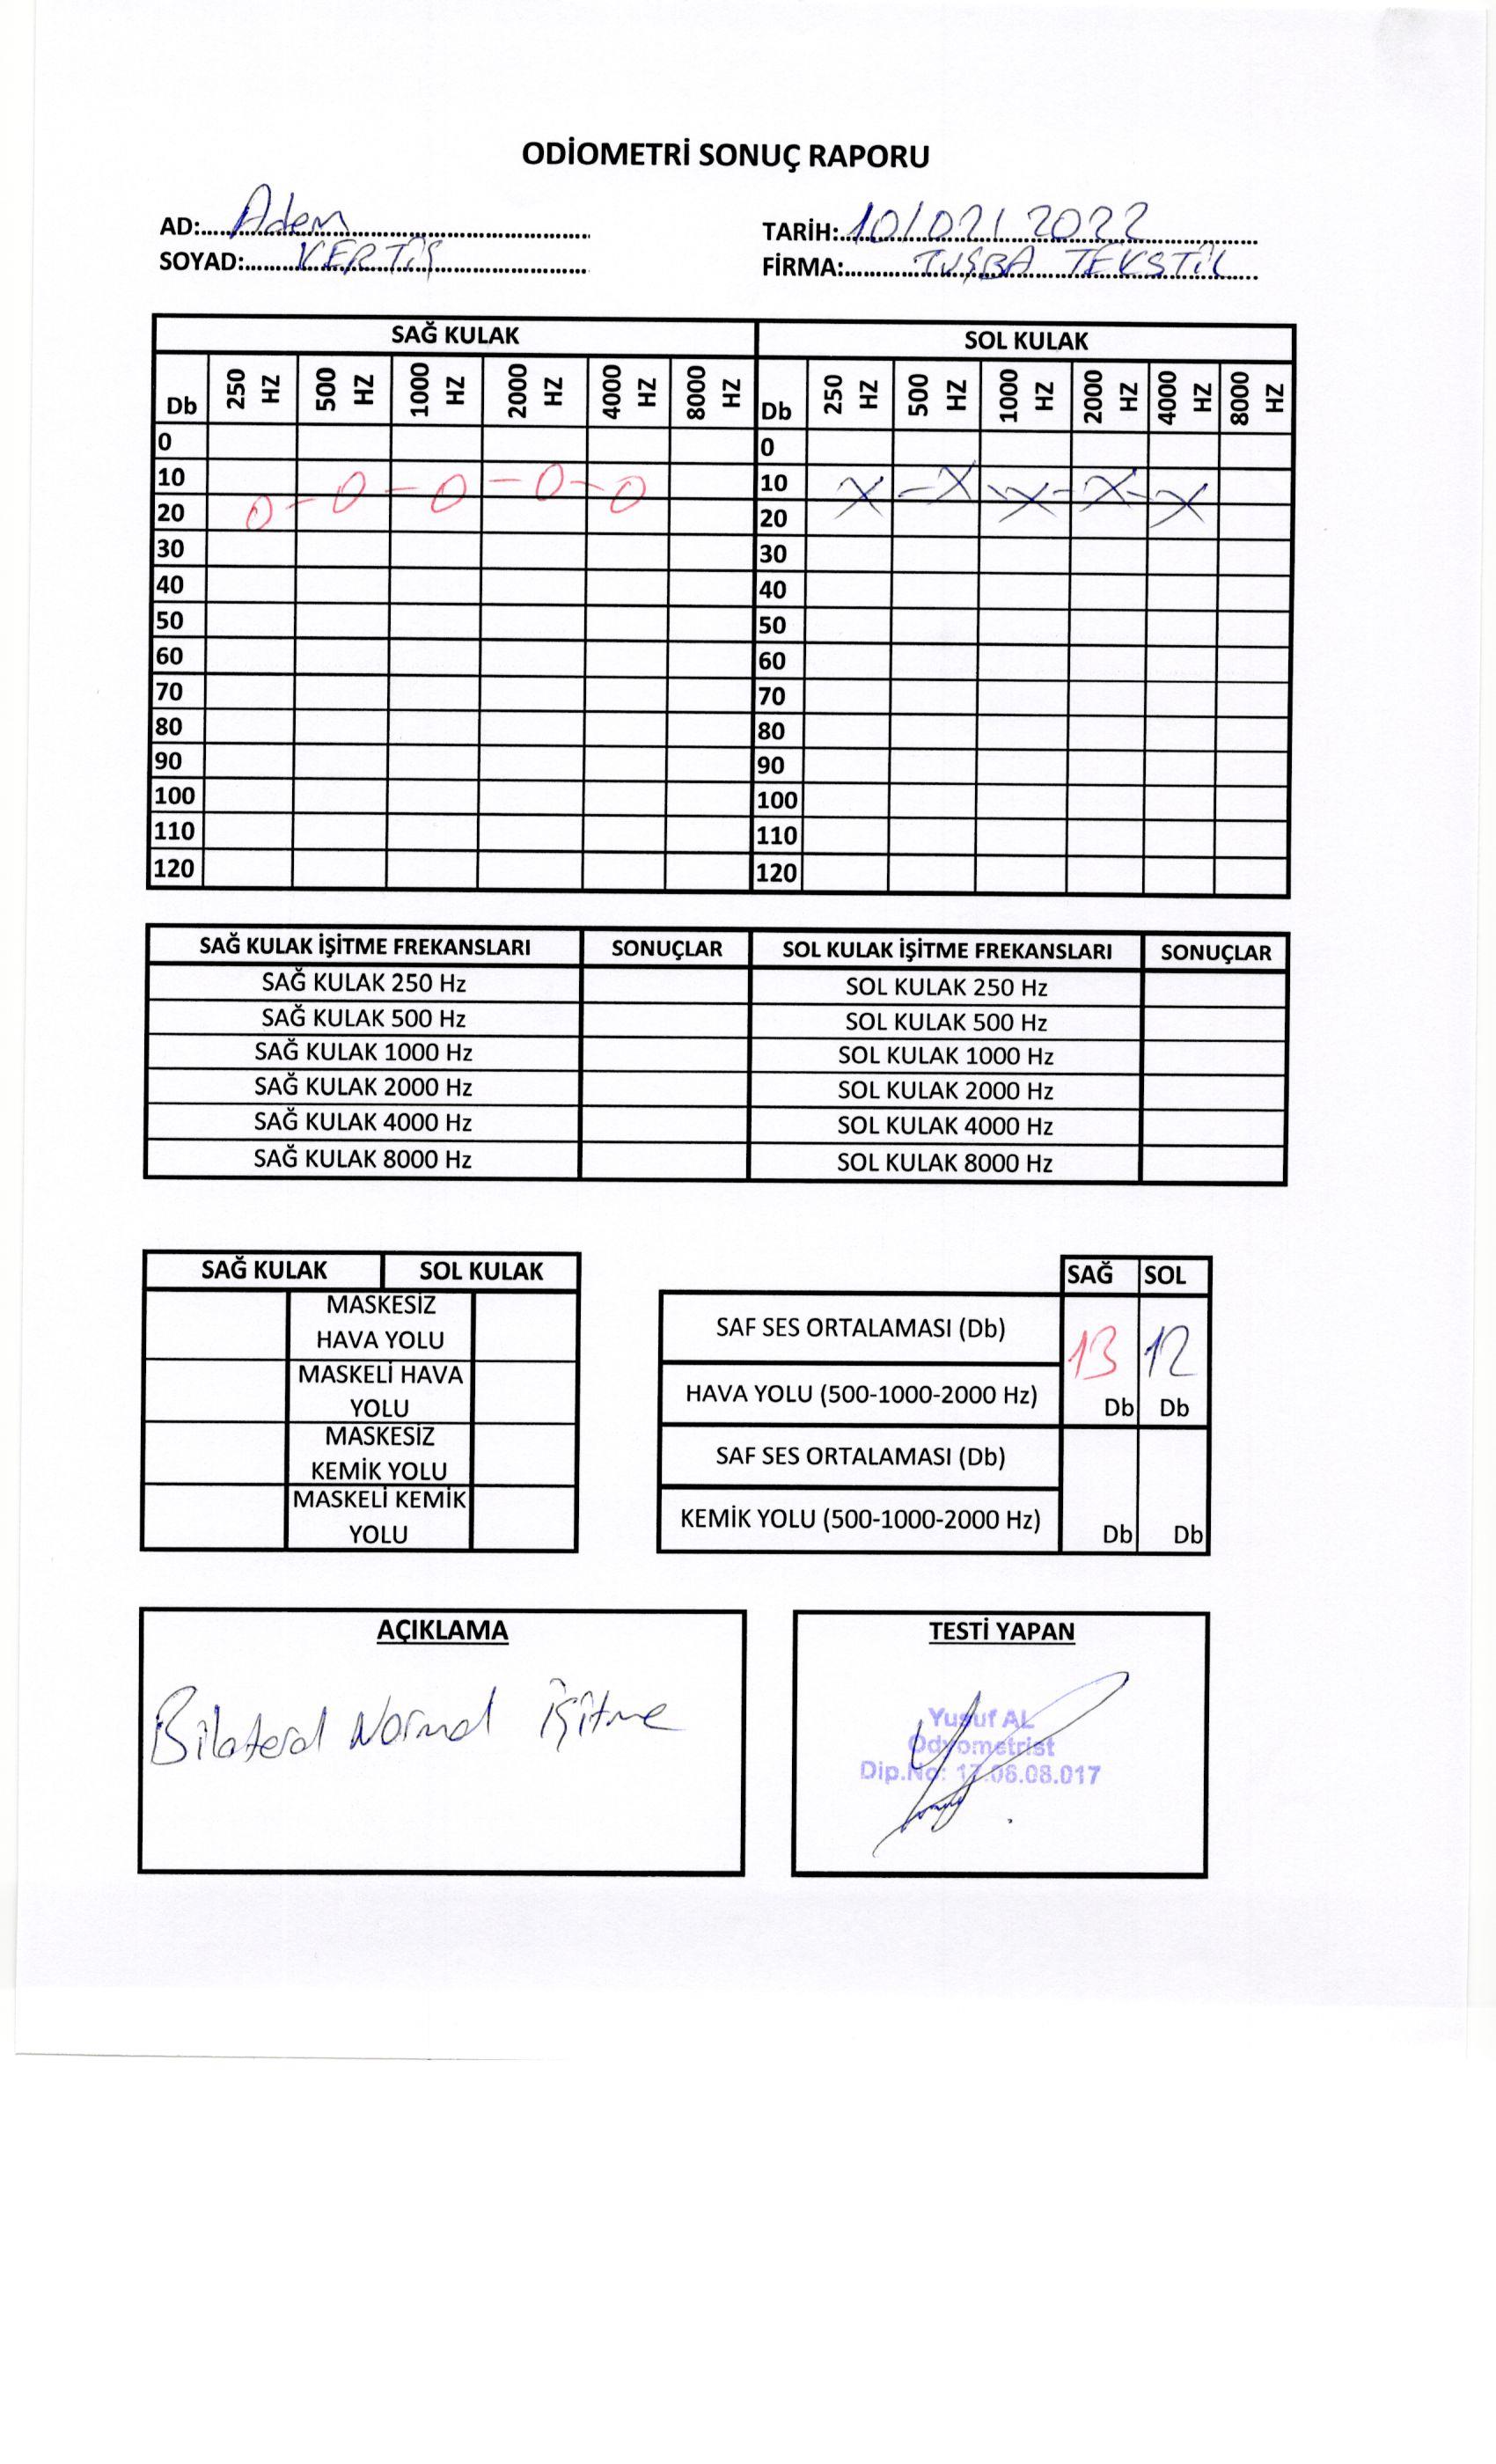 ODİOMETRİ SONUÇ RAPORU
AD: Adem
TARİH: 10/02/2022
SOYAD: KERTİŞ
FİRMA: TUŞBA TEKSTİL
SAĞ KULAK SOL KULAK
Db 250 HZ 500 HZ 1000 HZ 2000 HZ 4000 HZ 8000 HZ Db 250 HZ 500 HZ 1000 HZ 2000 HZ 4000 HZ 8000 HZ
0 0
10 10
20 20
30 30
40 40
50 50
60 60
70 70
80 80
90 90
100 100
110 110
120 120
SAĞ KULAK İŞİTME FREKANSLARI SONUÇLAR SOL KULAK İŞİTME FREKANSLARI SONUÇLAR
SAĞ KULAK 250 Hz SOL KULAK 250 Hz
SAĞ KULAK 500 Hz SOL KULAK 500 Hz
SAĞ KULAK 1000 Hz SOL KULAK 1000 Hz
SAĞ KULAK 2000 Hz SOL KULAK 2000 Hz
SAĞ KULAK 4000 Hz SOL KULAK 4000 Hz
SAĞ KULAK 8000 Hz SOL KULAK 8000 Hz
SAĞ KULAK SOL KULAK
MASKESİZ
HAVA YOLU
MASKELİ HAVA
YOLU
MASKESİZ
KEMİK YOLU
MASKELİ KEMİK
YOLU
SAĞ SOL
SAF SES ORTALAMASI (Db)
13 12
HAVA YOLU (500-1000-2000 Hz) Db Db
SAF SES ORTALAMASI (Db)
KEMİK YOLU (500-1000-2000 Hz) Db Db
AÇIKLAMA
Bilateral Normal İşitme
TESTİ YAPAN
Yusuf AL
Odyometrist
Dip.No: 17.06.08.017